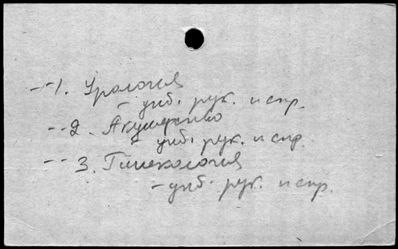 --1. Урология
- учб. рук. и спр.
--2. Акушерство
- учб. рук. и спр.
--3. Гинекология
- учб. рук. и спр.